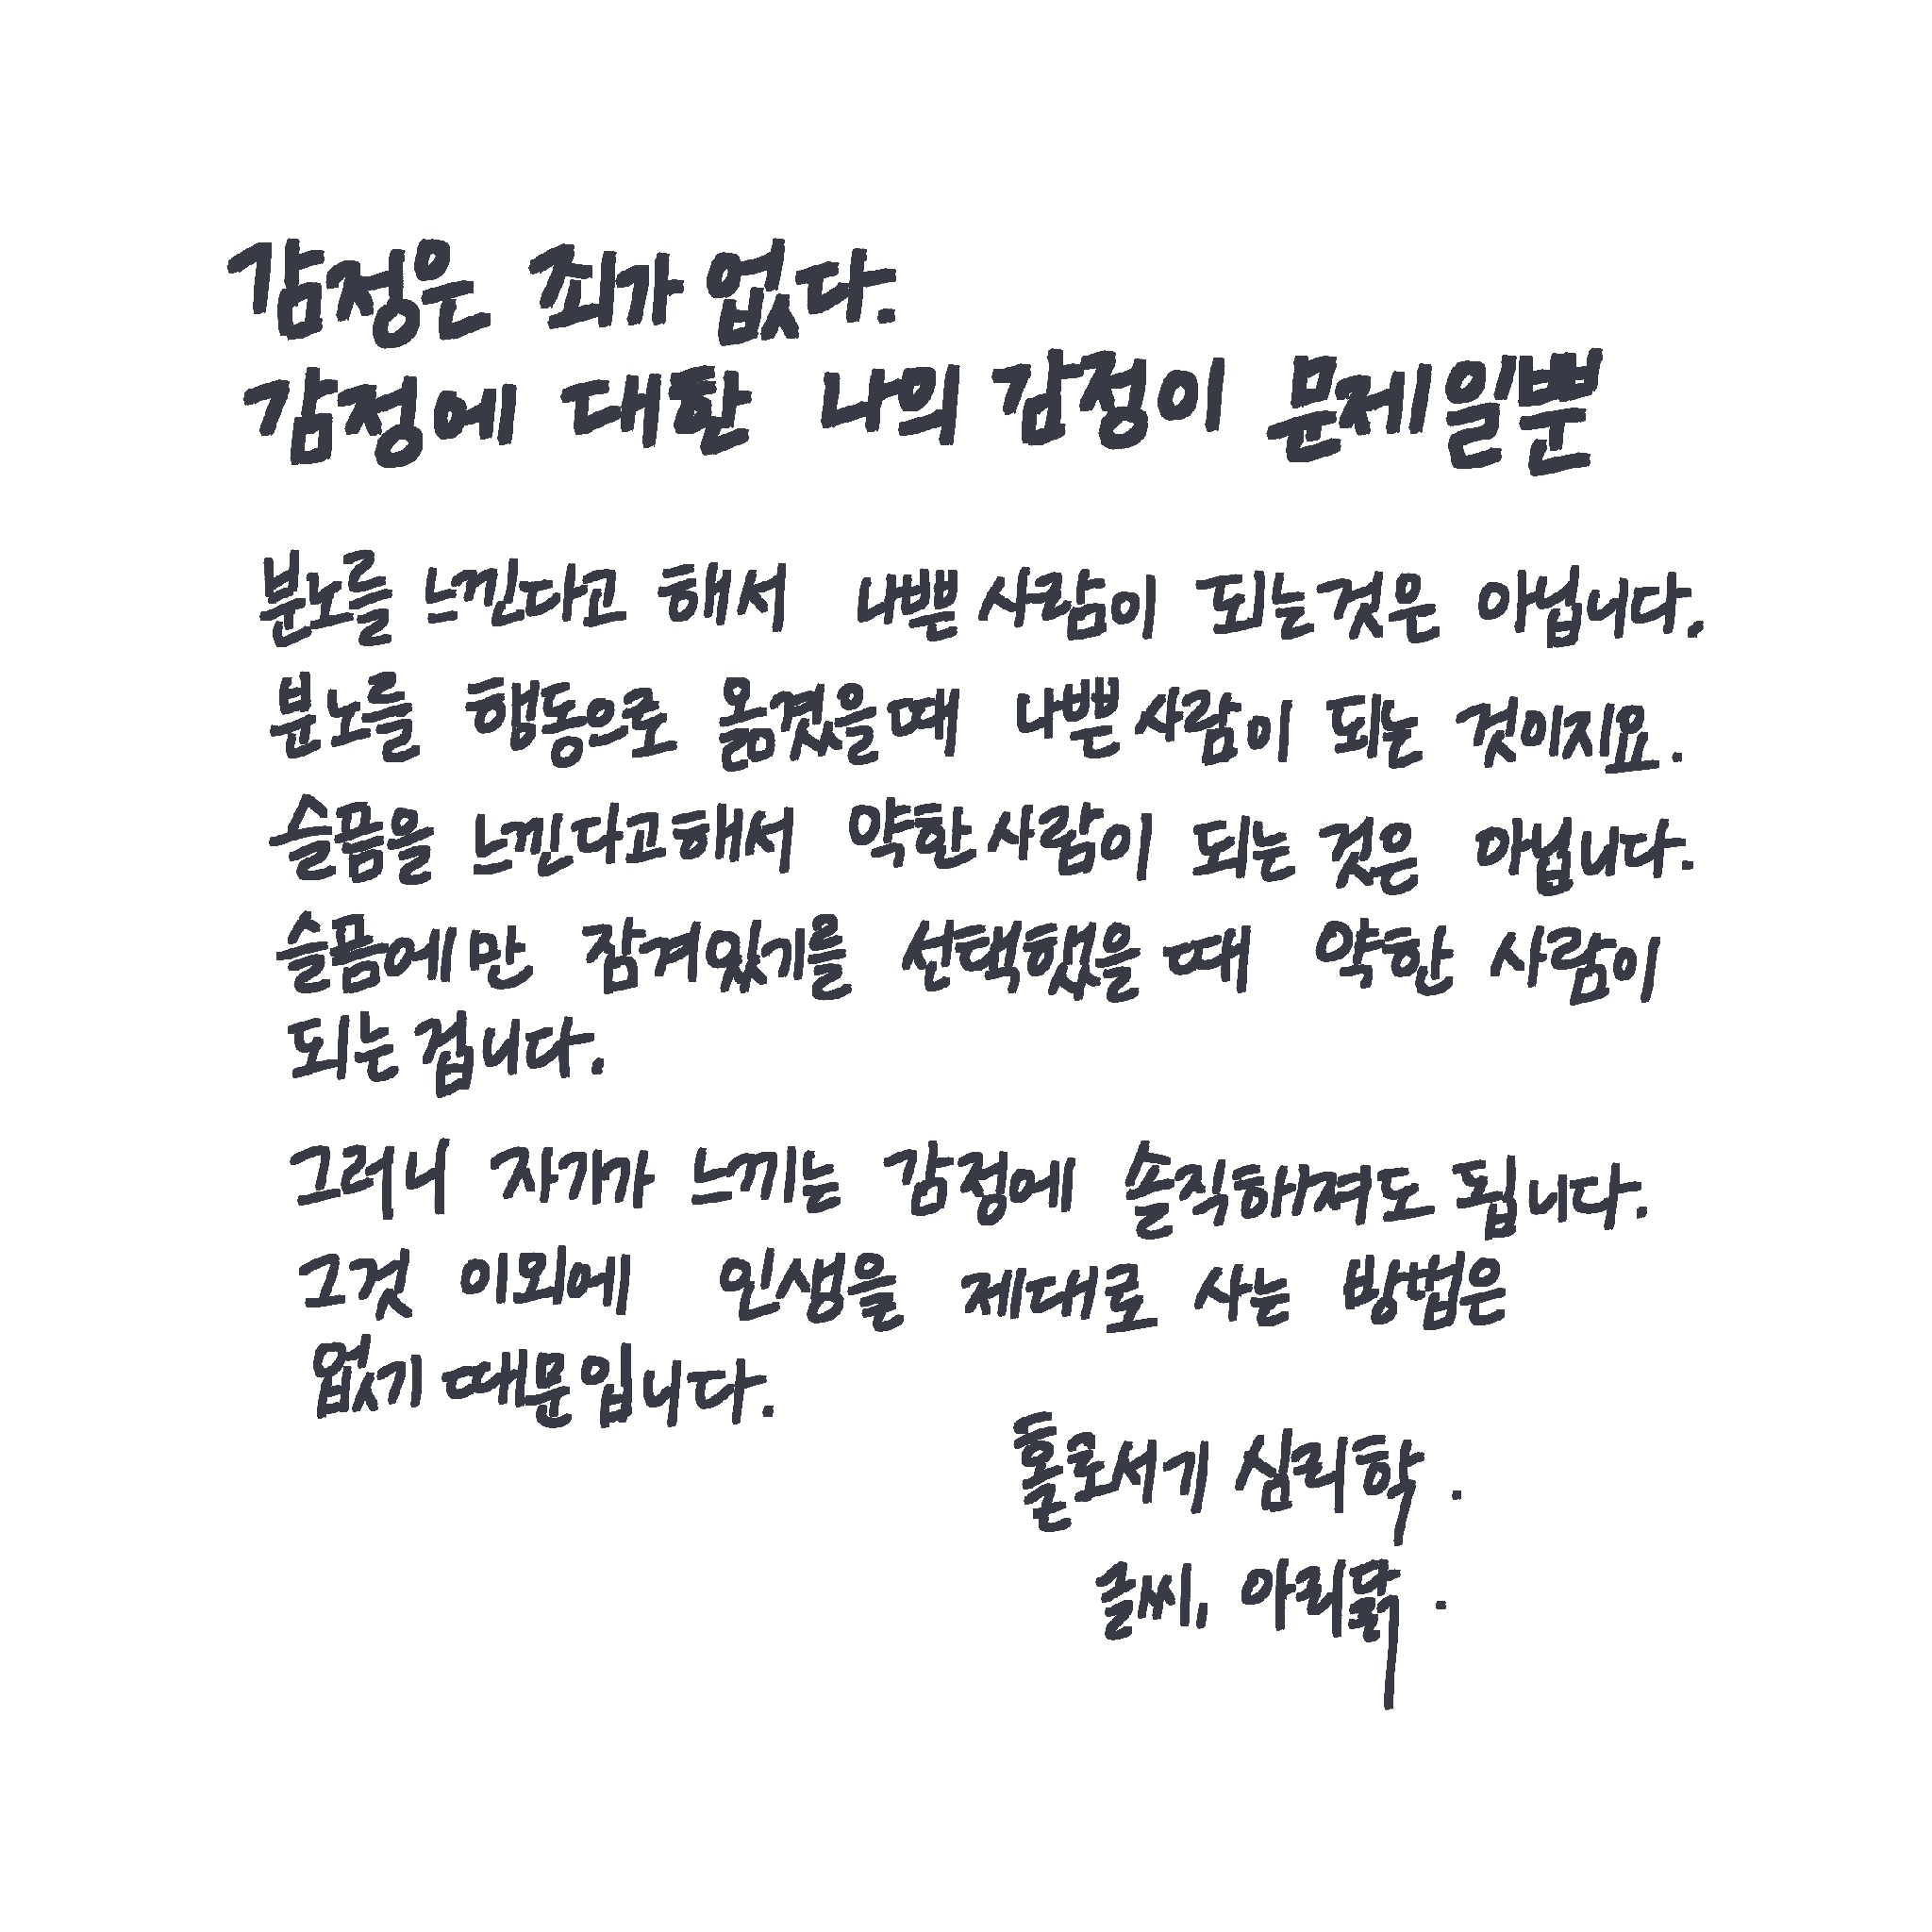 감정은 죄가 없다.
감정에 대한 나의 감정이 문제일뿐
분노를 느낀다고 해서 나쁜 사람이 되는것은 아닙니다.
분노를 행동으로 옮겼을때 나쁜사람이 되는 것이지요.
슬픔을 느낀다고해서 약한사람이 되는 것은 아닙니다.
슬픔에만 잠겨있기를 선택했을 때 약한 사람이
되는 겁니다.
그러니 자기가 느끼는 감정에 솔직하셔도 됩니다.
그것 이외에 인생을 제대로 사는 방법은
없기 때문입니다.
홀로서기 심리학.
글씨, 아리닭.